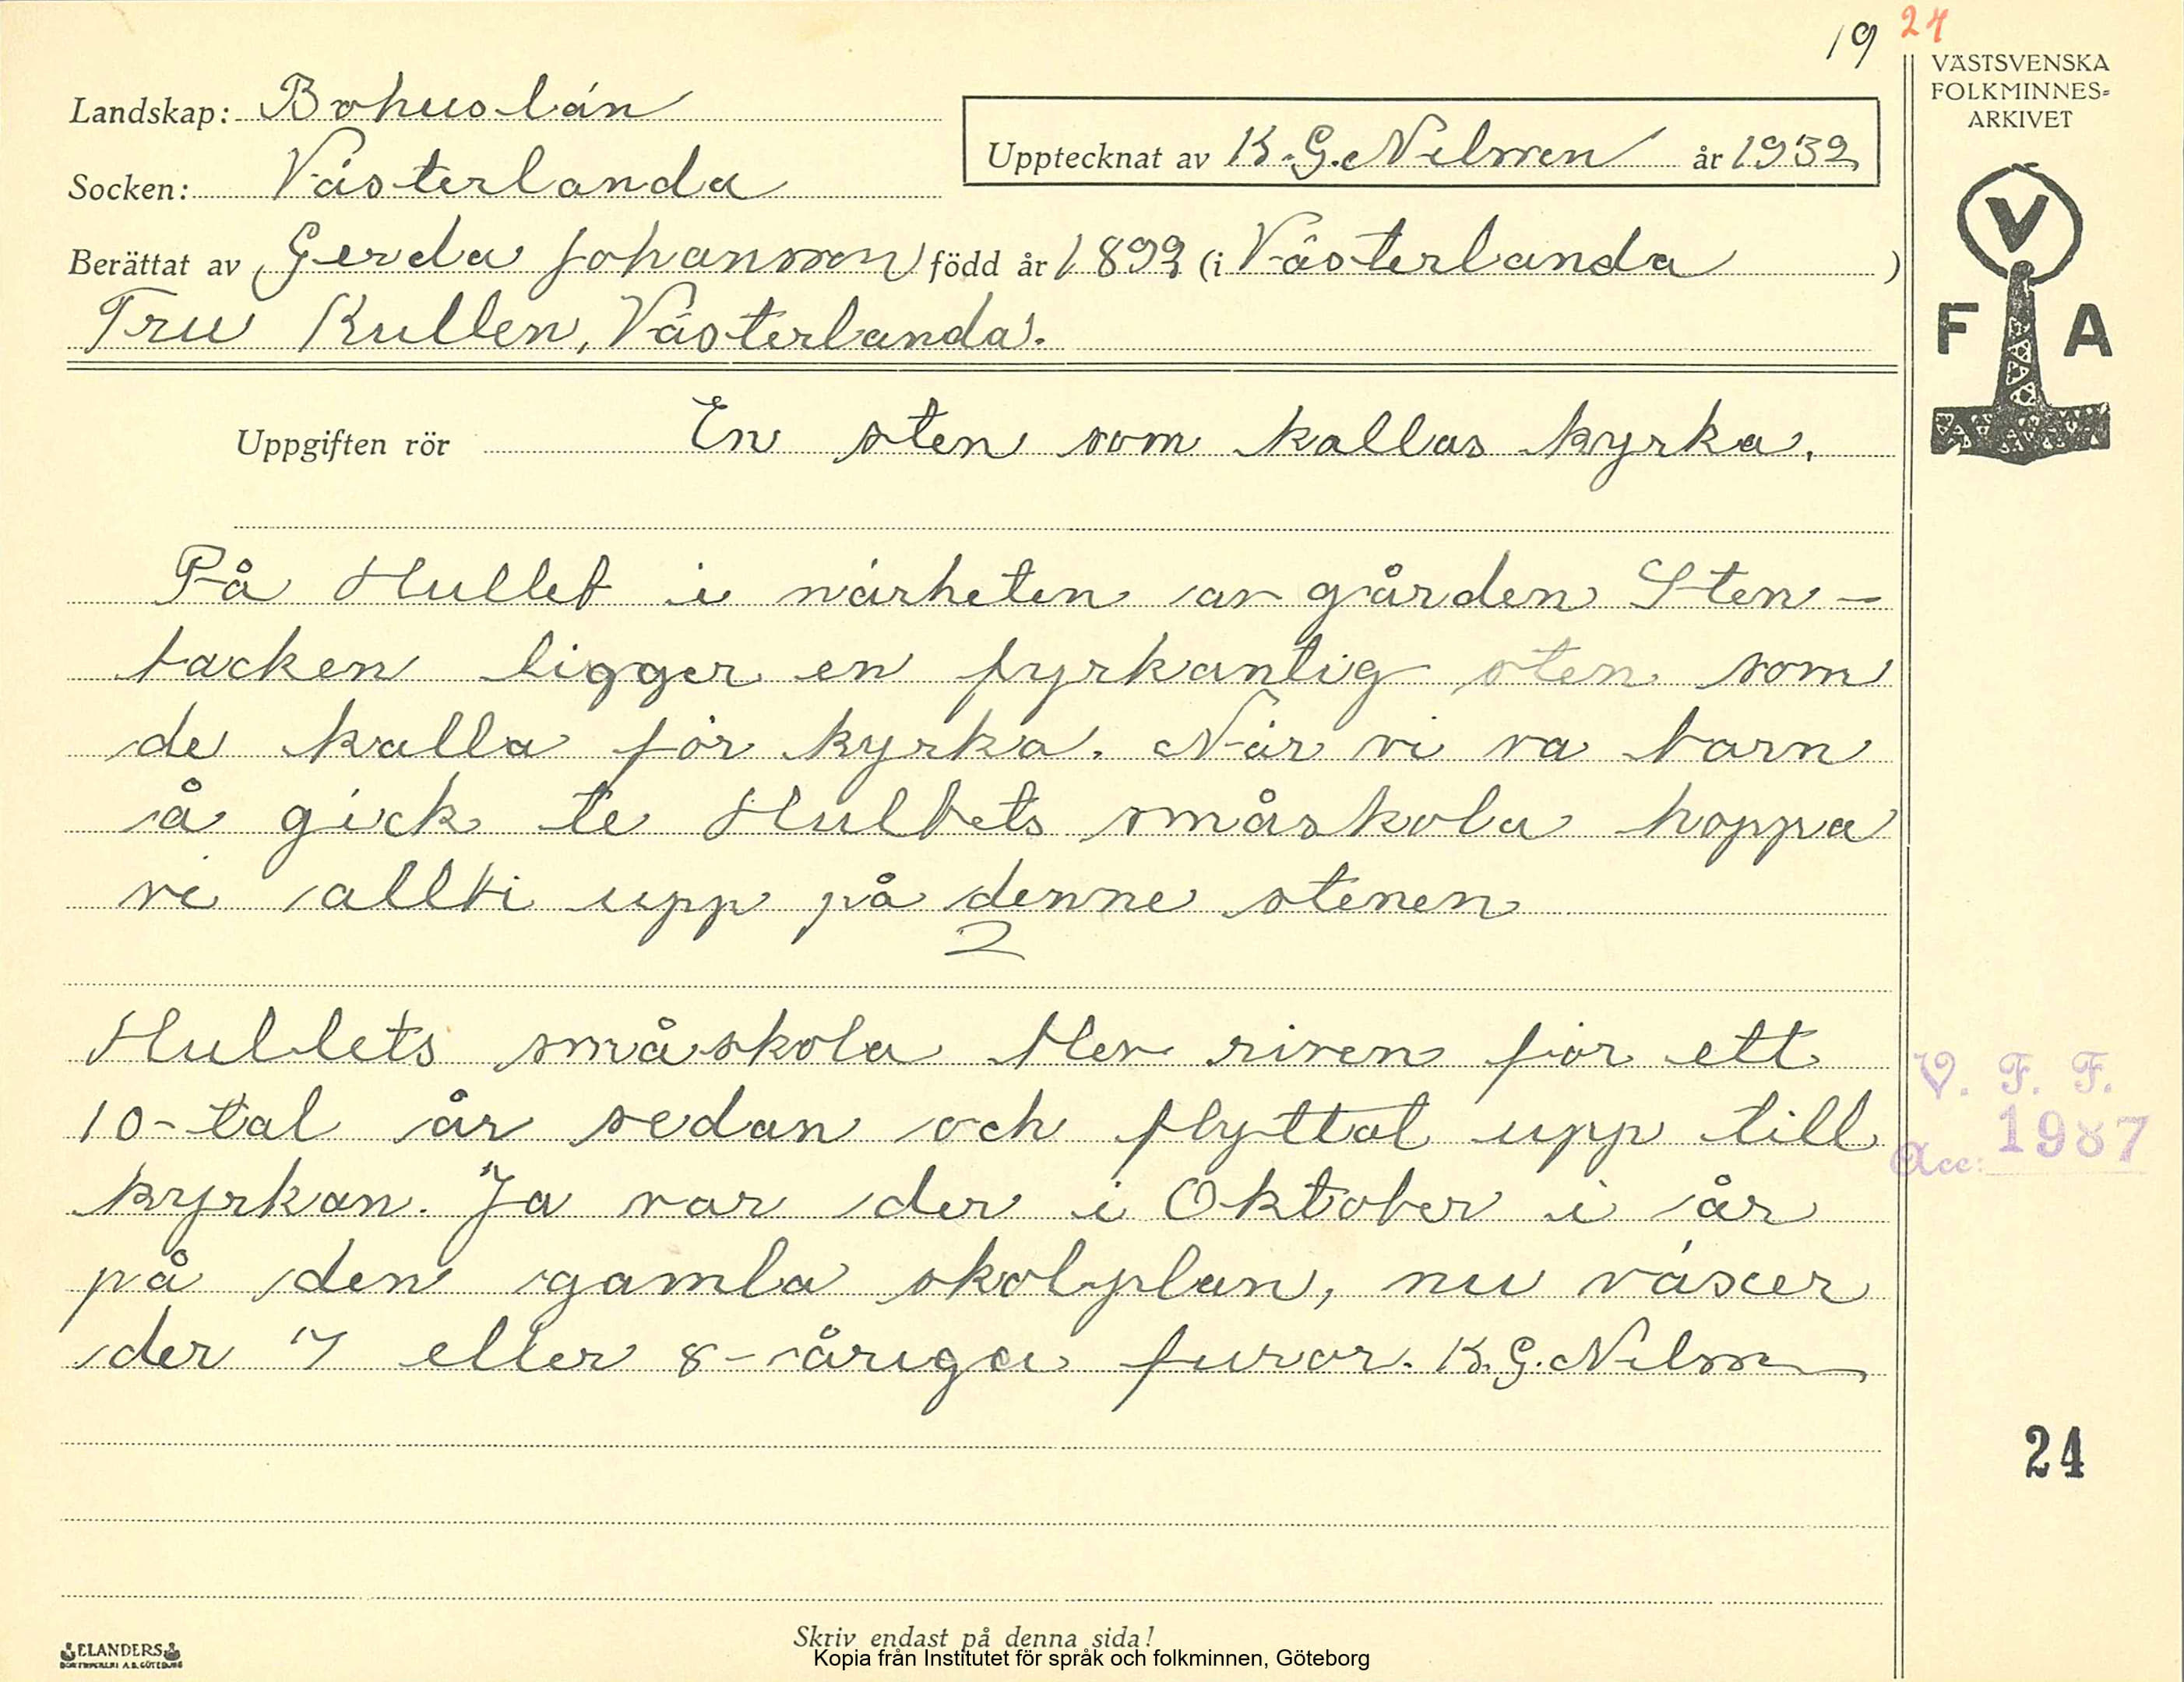 19 24
VÄSTSVENSKA
FOLKMINNES=
ARKIVET
Landskap: Bohuslän
Upptecknat av K. G. Nilsson år 1932
Socken: Västerlanda
Berättat av Gerda Johansson född år 1892 (i Västerlanda )
Fru Kullen, Västerlanda.
V
F A
Uppgiften rör En sten som kallas kyrka.
På Hullet i närheten av gården Sten-
backen ligger en fyrkantig sten som
de kalla för kyrka. När vi va barn
å gick te Hulltets småskola hoppa
vi allti upp på denne stenen
2
Hullets småskola blev riven för ett
10-tal år sedan och flyttat upp till
kyrkan. Ja var der i Oktober i år
på den gamla skolplan, nu växer
der 7 eller 8-åriga furor. K. G. Nilsson
V. F. F.
Acc: 1987
24
Skriv endast på denna sida!
Kopia från Institutet för språk och folkminnen, Göteborg
ELANDERS
BOKTRYCKERI A.B. GÖTEBORG